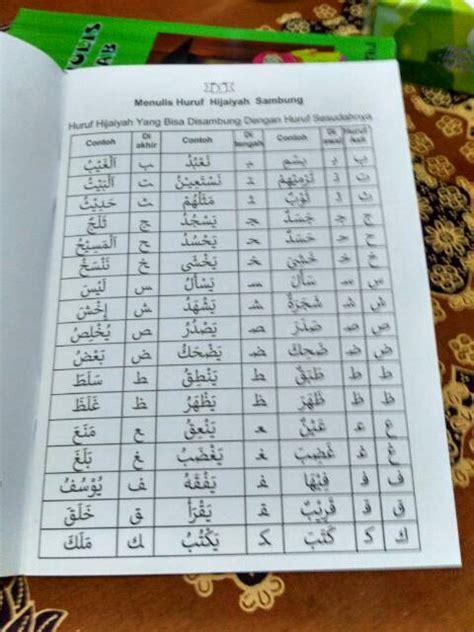 Menulis Huruf Hijaiyah Sambung
Huruf Hijaiyah Yang Bisa Disambung Dengan Huruf Sesudahnya
Contoh Di akhir Contoh Di tengah Contoh Di awal Huruf Asli
ب بـ بِسْمِ ـبـ نَعْبُدُ ـب اَلْغَيْبُ
ت تـ تَرْمِيْهِمْ ـتـ نَسْتَعِيْنُ ـت اَلْبَيْتُ
ث ثـ ثَوْبٌ ـثـ مَثَلُهُمْ ـث حَدِيْثُ
ج جـ جَسَدٌ ـجـ يَسْجُدُ ـج ثَلْجٌ
ح حـ حَسَدٌ ـحـ يَحْسُدُ ـح اَلْمَسِيْحُ
خ خـ خَشِيَ ـخـ يَخْشَى ـخ نَنْسَخْ
س سـ سَأَلَ ـسـ يَسْأَلُ ـس لَيْسَ
ش شـ شَجَرَةٌ ـشـ يَشْهَدُ ـش إِخْشَ
ص صـ صَدَرَ ـصـ يَصْدُرُ ـص يُخْلِصُ
ض ضـ ضَحِكَ ـضـ يَضْحَكُ ـض بَعْضُ
ط طـ طَبَقٌ ـطـ يَنْطِقُ ـط سَلَطَ
ظ ظـ ظَهَرَ ـظـ يَظْهَرُ ـظ غَلَظَ
ع عـ عَيْنٌ ـعـ يَنْعِقُ ـع مَنَعَ
غ غـ غَضِبَ ـغـ يَغْضَبُ ـغ بَلَغَ
ف فـ فِيْهَا ـفـ يَفْقَهُ ـف يُوْسُفُ
ق قـ قَرِيْبٌ ـقـ يَقْرَأُ ـق خَلَقَ
ك كـ كَتَبَ ـكـ يَكْتُبُ ـك مَلَكَ